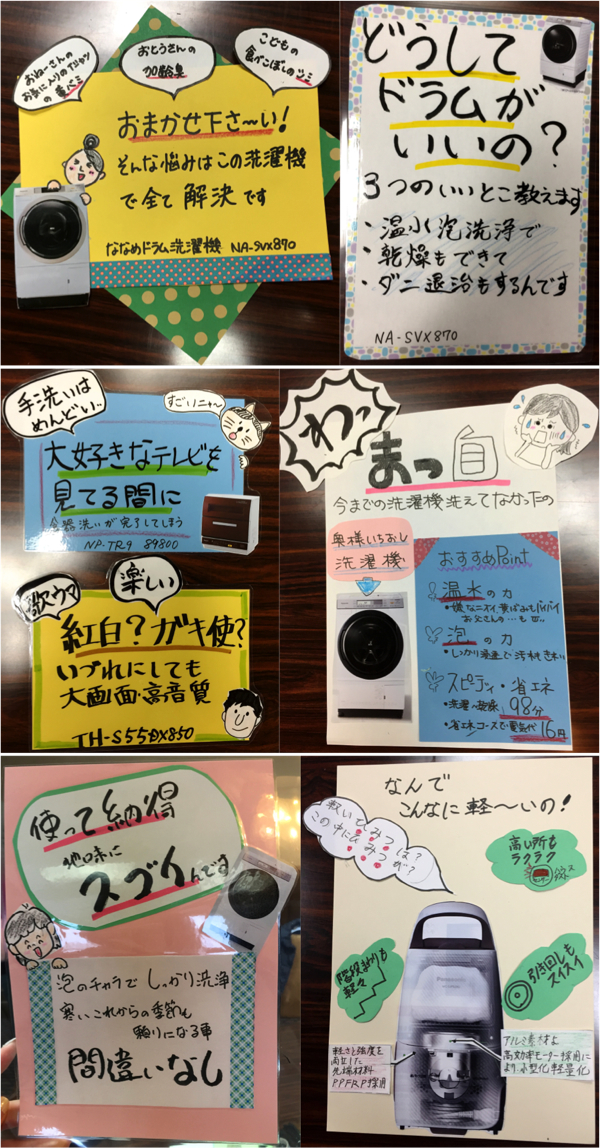 おねーさんの
お気に入りのTシャツ
の黄バミ
おとうさんの
加齢臭
こどもの
食べこぼしのシミ
おまかせ下さ〜い!
そんな悩みはこの洗濯機
で全て解決です
ななめドラム洗濯機 NA-SVX870
どうして
ドラムが
いいの?
3つのいいとこ教えます
・温水泡洗浄で
・乾燥もできて
・ダニ退治もするんです
NA-SVX870
手洗いは
めんどい..
すごいニャ〜
大好きなテレビを
見てる間に
食器洗いが完了してしまう
NP-TR9 89800
歌ウマ
楽しい
紅白?ガキ使?
いづれにしても
大画面・高音質
TH-55DX850
わっ
まっ白
今までの洗濯機洗えてなかったの
奥様いちおし
洗濯機
おすすめPoint
温水の力
・嫌なニオイ、黄ばみもバイバイ
お父さんの…も
泡の力
・しっかり浸透で汚れもきれい
スピーディ・省エネ
・洗濯〜乾燥 98分
・省エネコースで電気代16円
使って納得
地味に
スゴイんです
泡のチカラでしっかり洗浄
寒いこれからの季節も
頼りになる事
間違いなし
なんで
こんなに軽〜いの!
軽いひみつは?
この中にひみつが?
高し所も
ラクラク
階段まわりも
軽々
引き回しも
スイスイ
Panasonic
軽さと強度を
両立した
先端材料
PPFRP採用
アルミ素材よ
高効率モーター採用に
より小型化軽量化